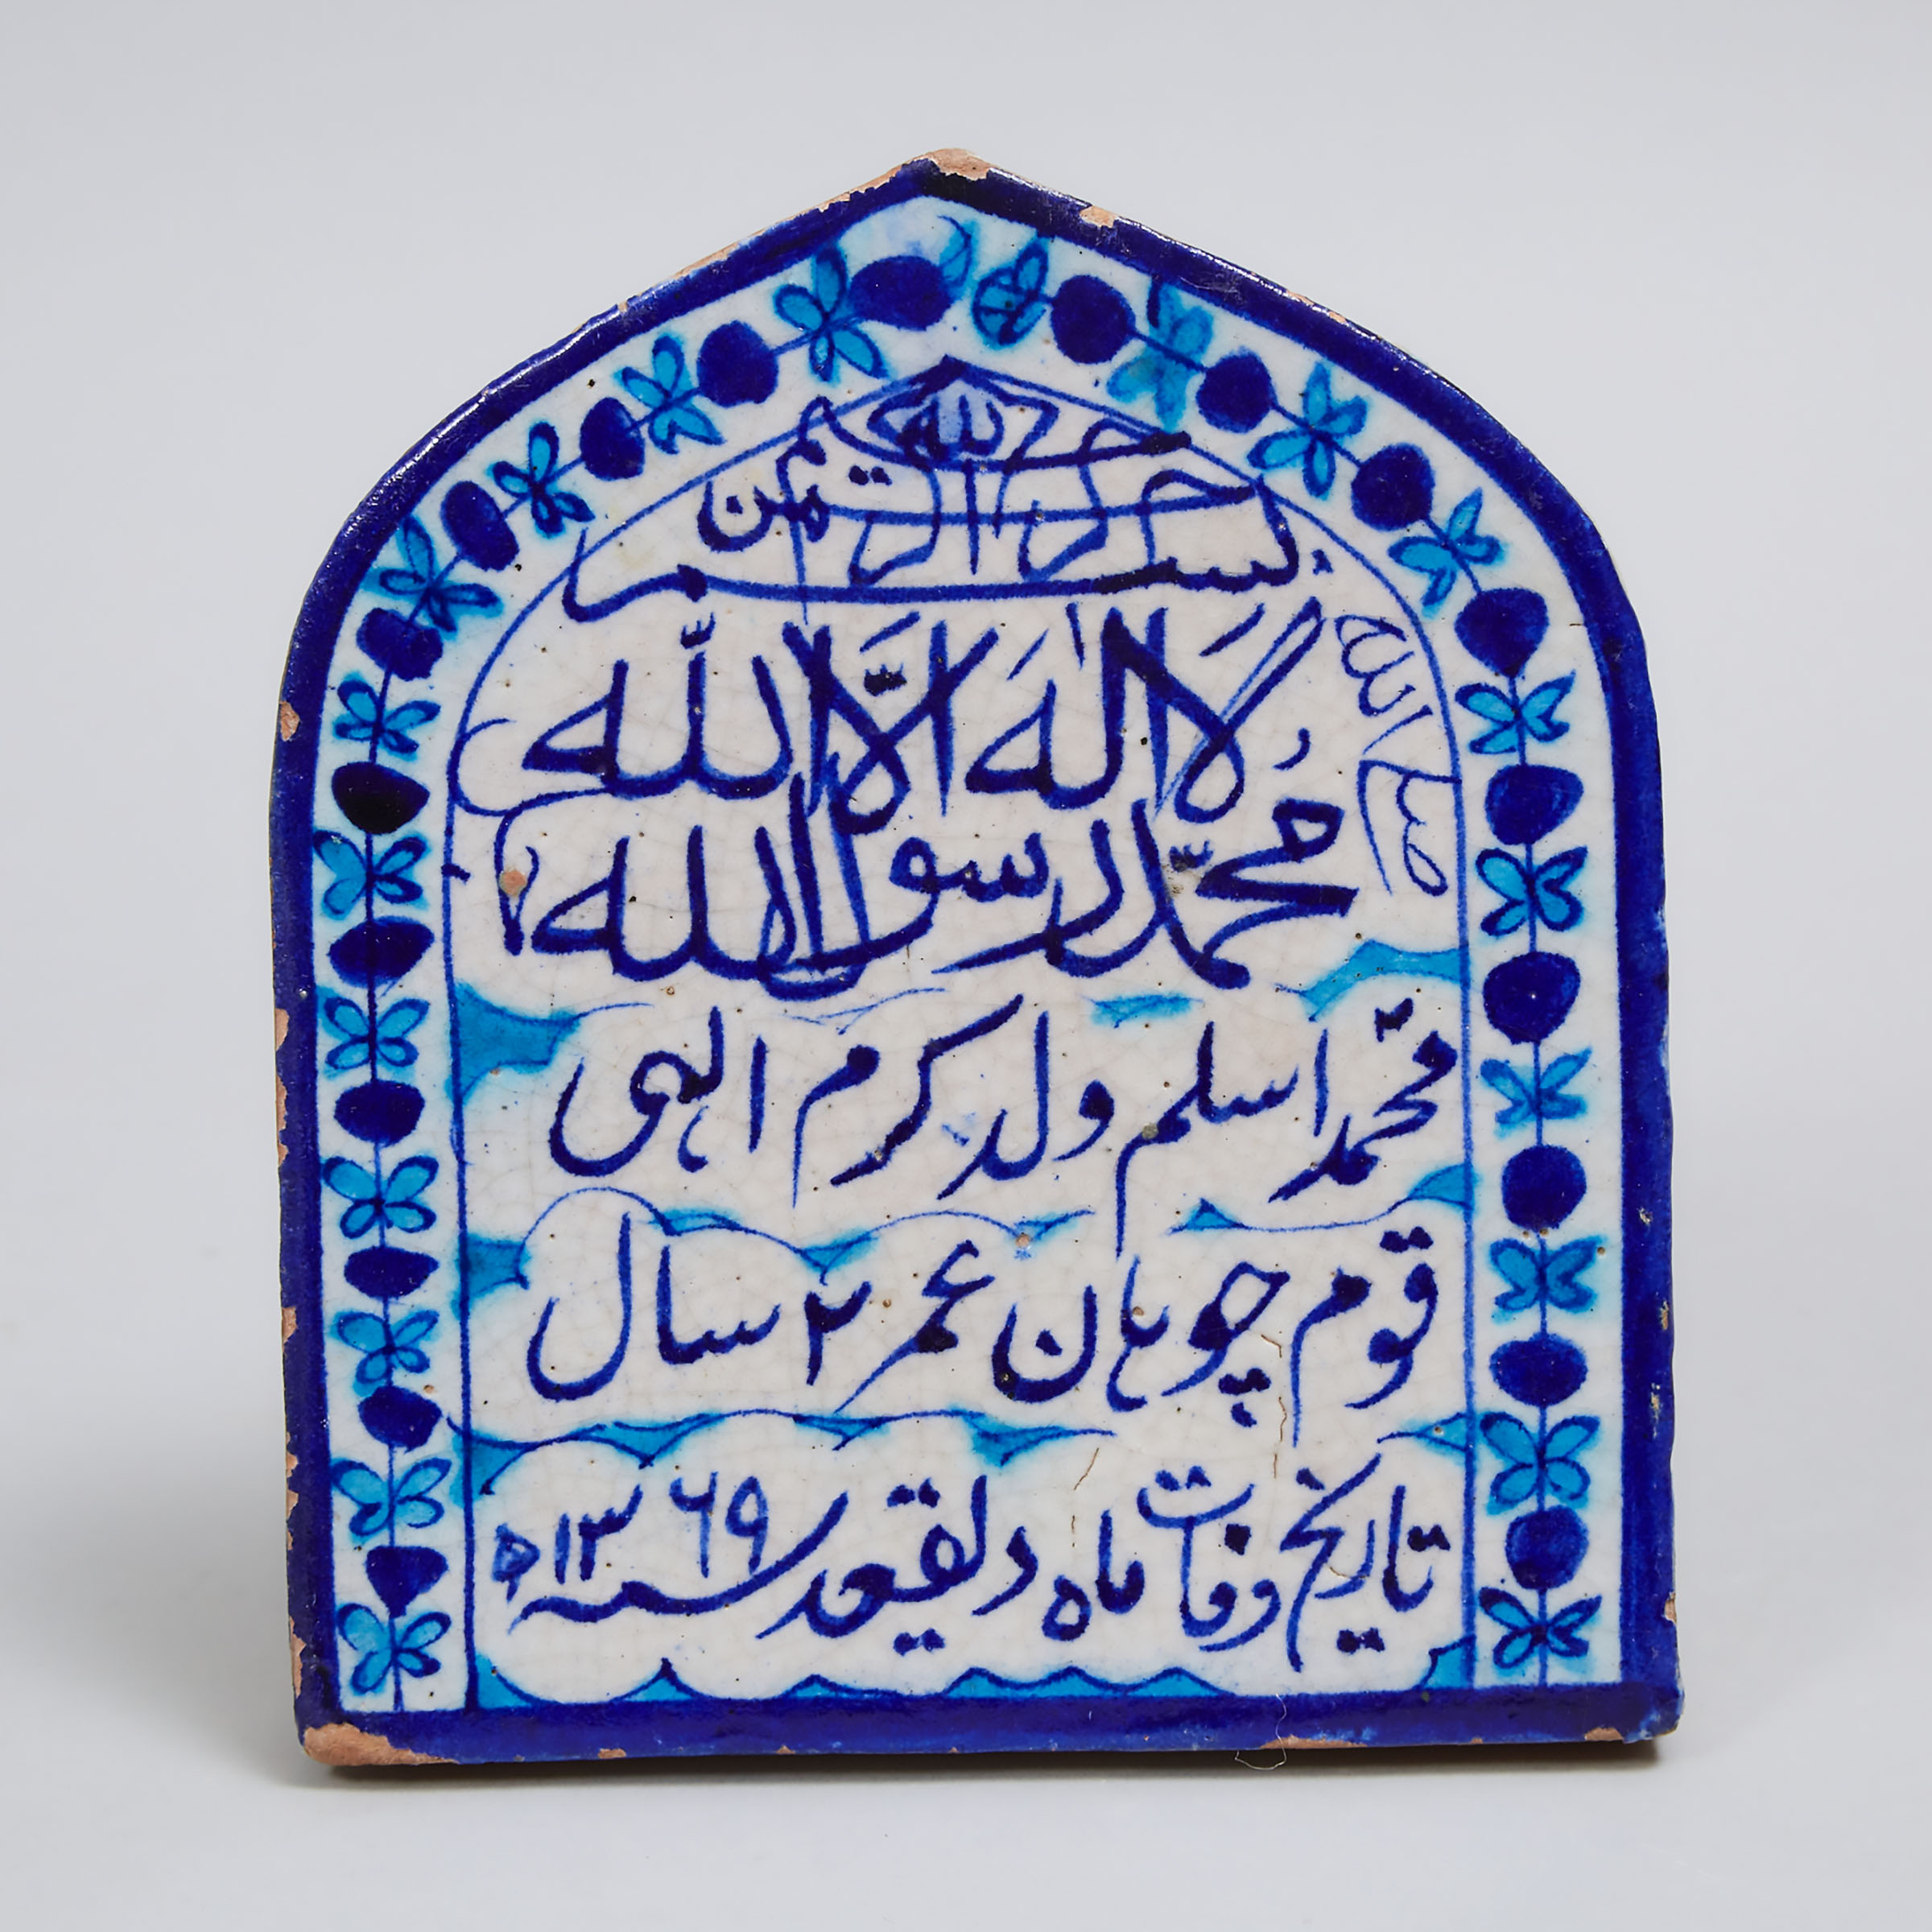 بسم الله الرحمن الرحيم
لا اله الا الله
محمد رسول الله
محمد اسلم ولد کرم الہی
قوم چوہان عمر ۲ سال
تاریخ وفات ماہ دلقیعد سنہ ۱۳۶۹ھ